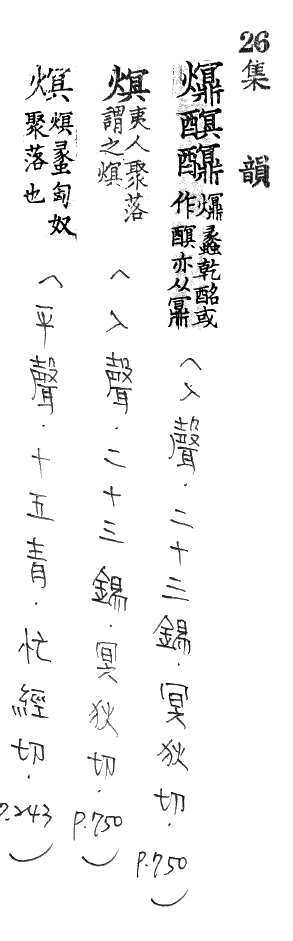 26集韻
㸏䤉 㸏蠡乾酪或作䤉亦从鼏(入聲.二十三錫.冥狄切.P.750)
熐 夷人聚落謂之熐(入聲.二十三錫.冥狄切.P.750)
熐 熐蠡匈奴聚落也(平聲.十五青.忙經切.P.243)